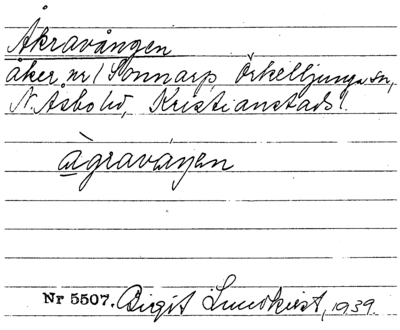 Åkravången
åker nr 1 Sonnarp, Örkelljunga sn,
N. Åsbo hd, Kristianstads l.
àgraváŋen
Nr 5507. Birgit Lundkvist, 1939.